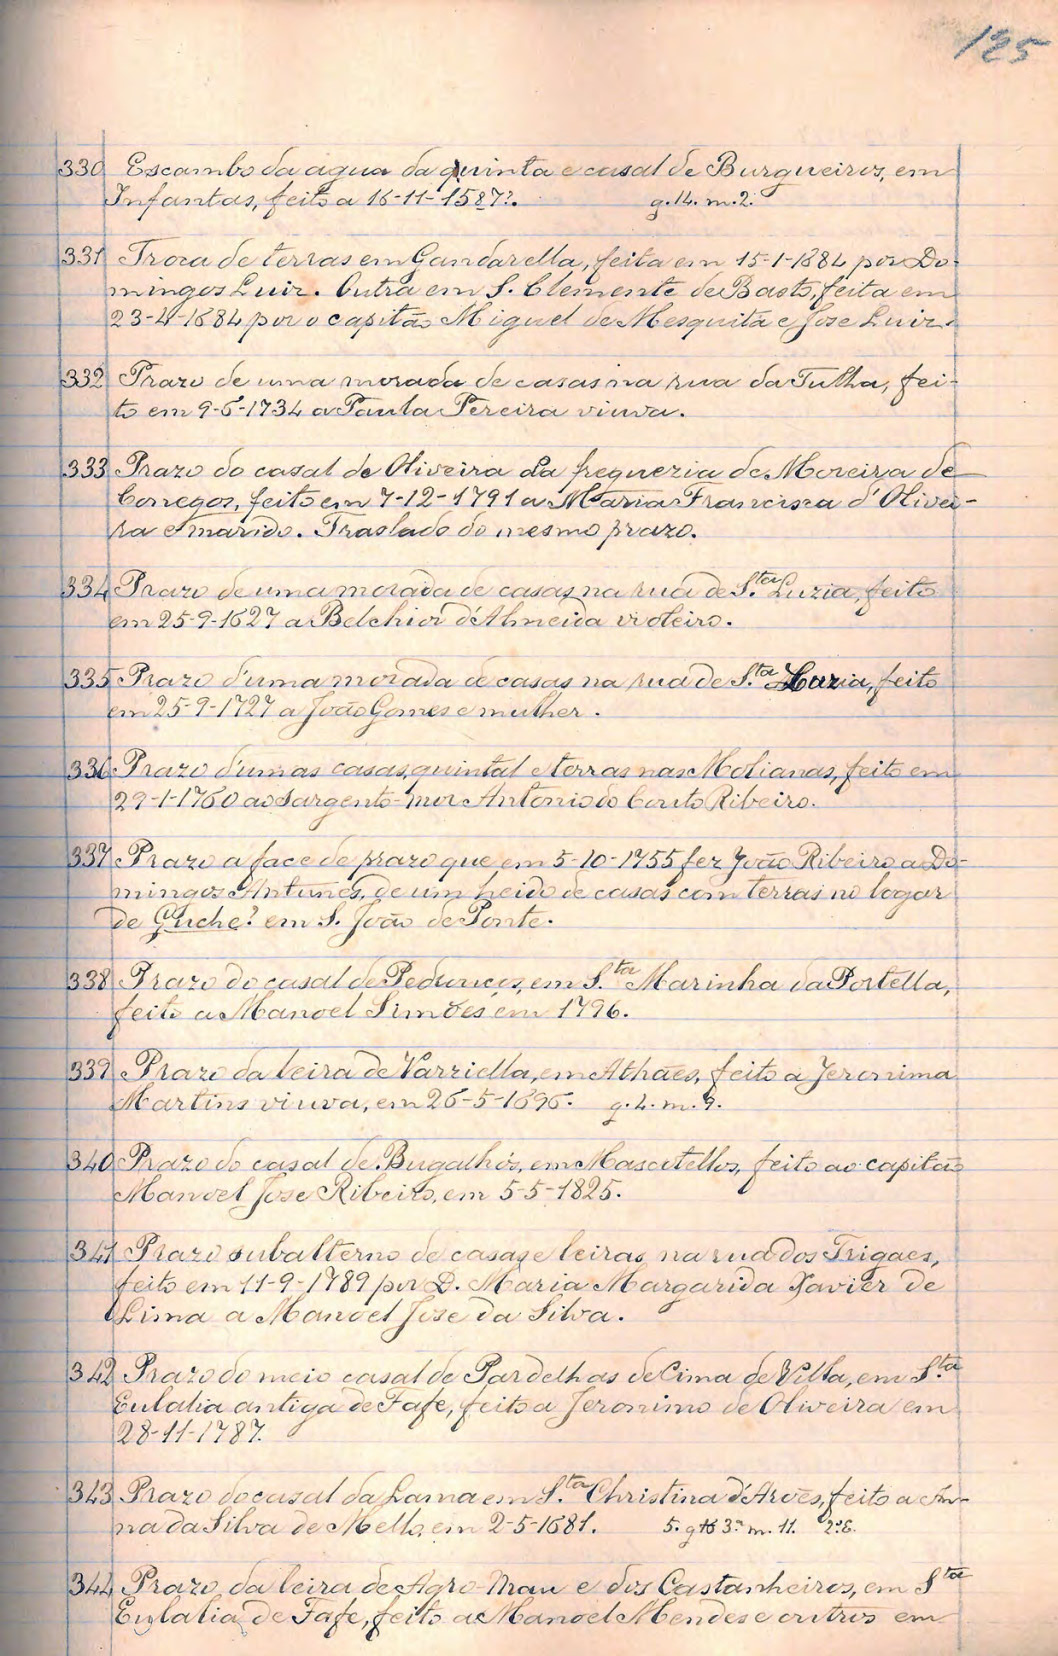 125
330 Escambo da agua da quinta e casal de Burgueiros, em
Infantas, feito a 16-11-1587?. g. 14. m. 2.
331 Troca de terras em Gandarella, feita em 15-1-1684 por Do-
mingos Luiz. Outra em S. Clemente de Basto, feita em
23-4-1684 por o capitão Miguel de Mesquita e Jose Luiz.
332 Prazo de uma morada de casas na rua da Tulha, fei-
to em 9-6-1734 a Paula Pereira viuva.
333 Prazo do casal de Oliveira da freguezia de Moreira de
Conegos, feito em 7-12-1791 a Maria Francisca d'Olivei-
ra e marido. Traslado do mesmo prazo.
334 Prazo de uma morada de casas na rua de S.ta Luzia, feito
em 25-9-1627 a Belchior d'Almeida violeiro.
335 Prazo d'uma morada de casas na rua de S.ta Luzia, feito
em 25-9-1727 a João Gomes e mulher.
336 Prazo d'umas casas, quintal e terras nas Molianas, feito em
29-1-1760 ao sargento-mor Antonio do Couto Ribeiro.
337 Prazo a face de prazo que em 5-10-1755 fez João Ribeiro a Do-
mingos Antunes, de um heido de casas com terras no logar
de Guche? em S. João de Ponte.
338 Prazo do casal de Pedunces, em S.ta Marinha da Portella,
feito a Manoel Simões em 1796.
339 Prazo da leira de Varziella, em Athães, feito a Jeronima
Martins viuva, em 26-5-1696. g. 4. m. 9.
340 Prazo do casal de Bugalhós, em Mascotellos, feito ao capitão
Manoel Jose Ribeiro, em 5-5-1825.
341 Prazo subalterno de casas e leiras na rua dos Trigaes,
feito em 11-9-1789 por D. Maria Margarida Xavier de
Lima a Manoel Jose da Silva.
342 Prazo do meio casal de Pardelhas de Cima de Villa, em S.ta
Eulalia antiga de Fafe, feito a Jeronimo de Oliveira em
28-11-1787.
343 Prazo do casal da Lama em S.ta Christina d'Arões, feito a An-
na da Silva de Mello, em 2-5-1681. 5. g 16 3.ª m. 11. 2.º E.
344 Prazo da leira de Agro-Mau e dos Castanheiros, em S.ta
Eulalia de Fafe, feito a Manoel Mendes e outros em